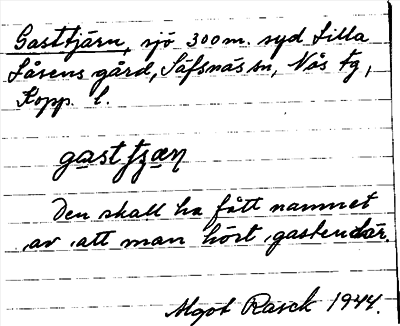 Gasttjärn, sjö 300 m. syd Lilla
Låsens gård, Säfsnäs sn, Nås tg,
Kopp. l.
gasttȷæṇ
Den skall ha fått namnet
av att man hört gasten där.
Algot Rasck 1944.